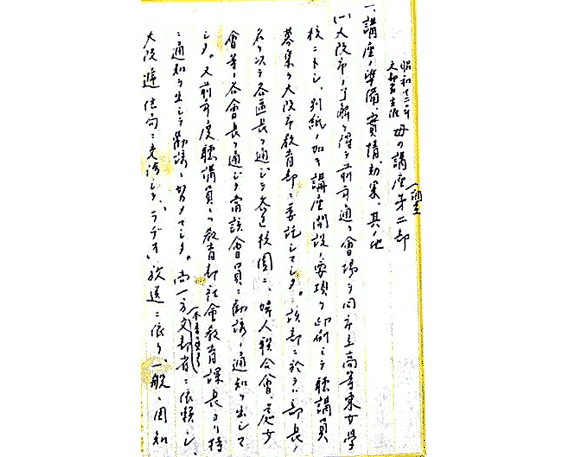 昭和十二年
文部省主催 母の講座第二部
(通道
一、講座ノ準備、實情、効果、其ノ他
(一)大阪市ノ了解ヲ得テ前年通リ會場ヲ同市立高等東女學
校ニトシ、別紙ノ如キ講座開設ノ要項ヲ印刷シテ聽講員
募集ヲ大阪市教育部ニ委託シマシタ。該部ニ於テハ部長ノ
名ヲ以テ各區長ヲ通ジテ各連校園ニ、婦人聯合會、處女
會等ハ各會長ヲ通ジテ當該會員ニ勸誘ノ通知ヲ出シマ
シタ。又前年度聽講員ニハ教育部社會教育課長ヨリ特
ニ通知ヲ出シテ勸誘ニ努メマシタ。尚一方文部省ニ依頼シ、
大阪遞信局ニ交渉シテ、ラヂオノ放送ニ依リ、一般ニ周知